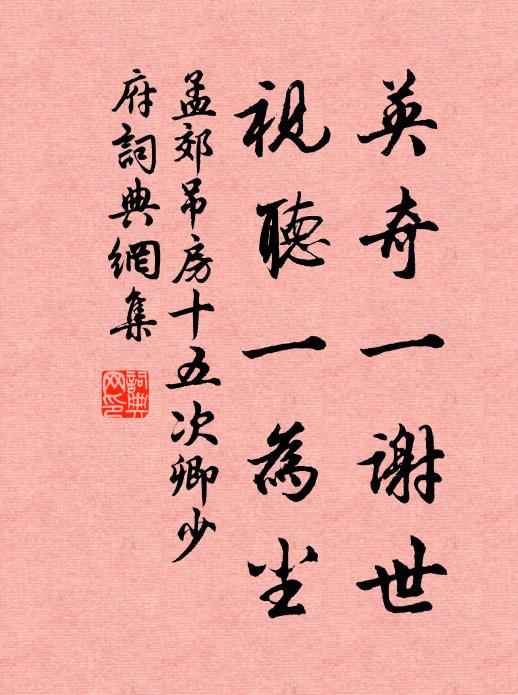 英奇一謝世
視聽一為尘
孟郊吊房十五次卿少
府詞典網集
詞典
网印